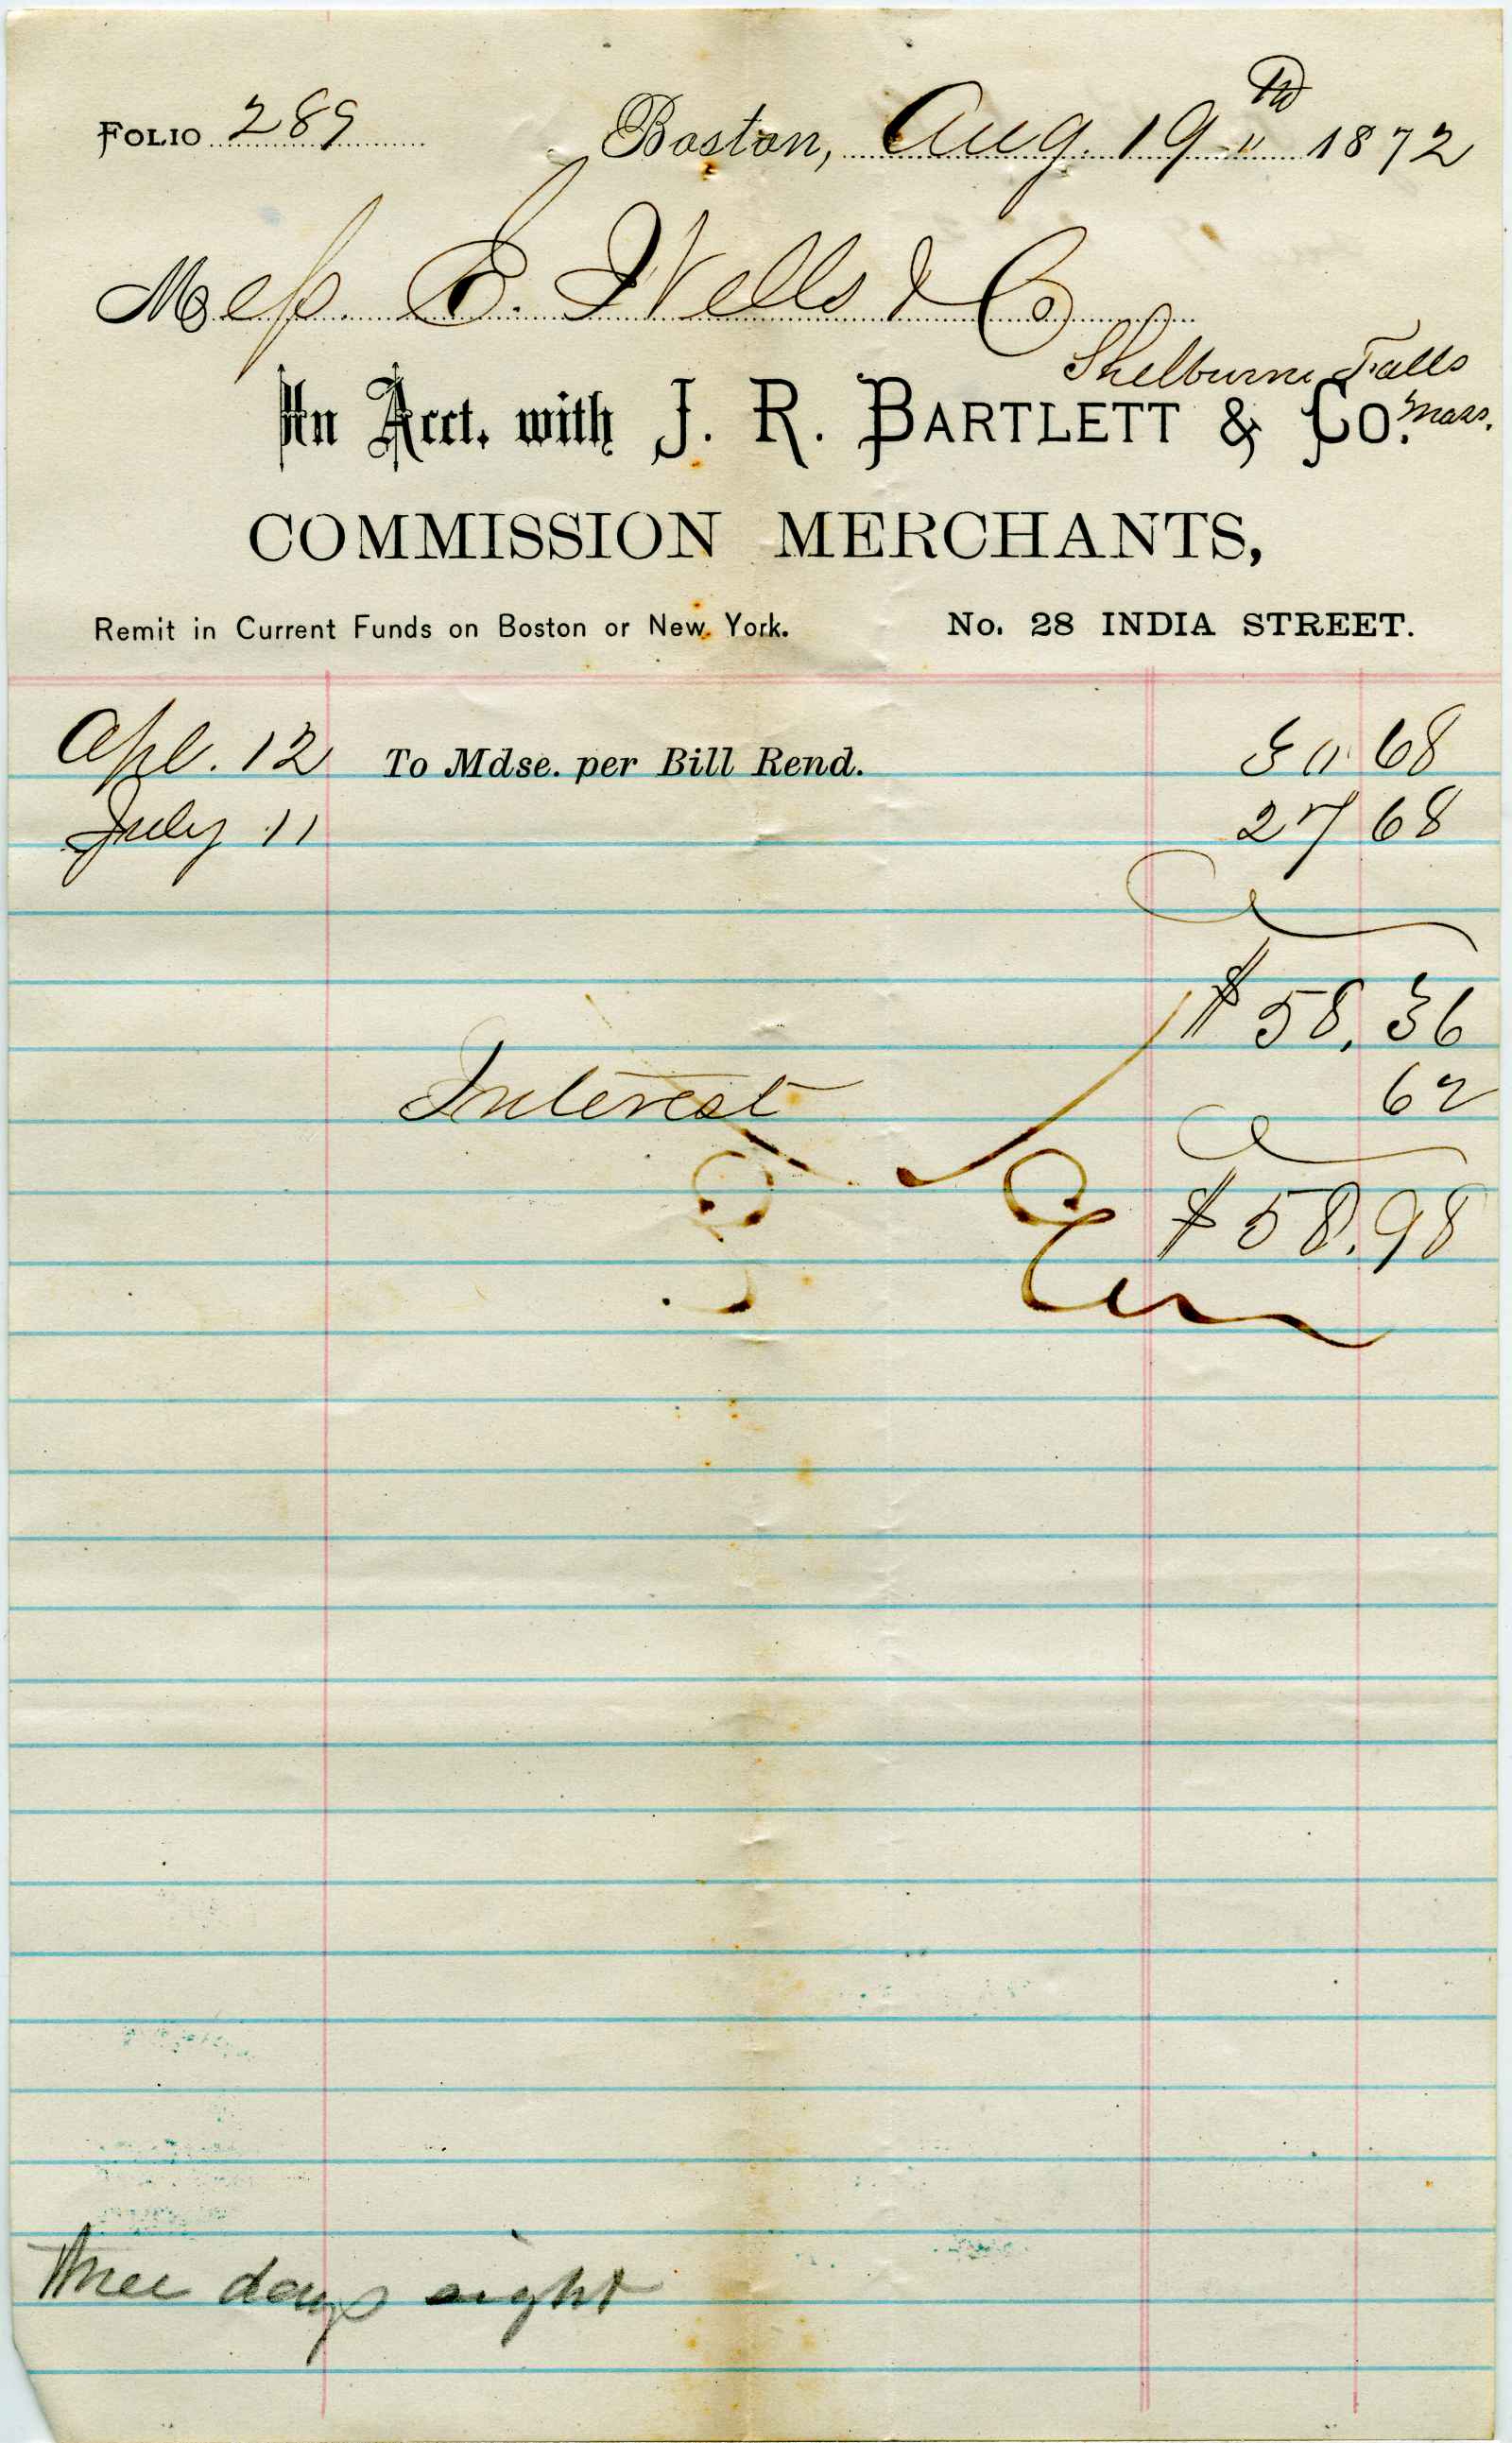 FOLIO 289 Boston, Aug. 19th 1872
Mess. E. Wells & Co
Shelburne Falls
Mass.
In Acct. with J. R. BARTLETT & CO.
COMMISSION MERCHANTS,
Remit in Current Funds on Boston or New York. No. 28 INDIA STREET.
Apl. 12 To Mdse. per Bill Rend. 30 68
July 11 27 68
$58.36
Interest 62
$58.98
three days sight